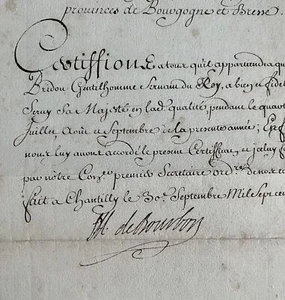 provinces de Bourgogne et Bresse.
Certiffions a tous qu'il appartiendra que
Bridon Gentelhomme Servant du Roy, a bien et fidel
Servy Sa Majesté en lad. qualité, pendant le quart
Juillet Aoust et Septembre de la presente année; En foy
nous luy avons accordé le present Certifficat, et icelny
par nôtre premier Secretaire ord.re de nos
fait a Chantilly le 30.e Septembre Mil Sept cent
de Bourbon